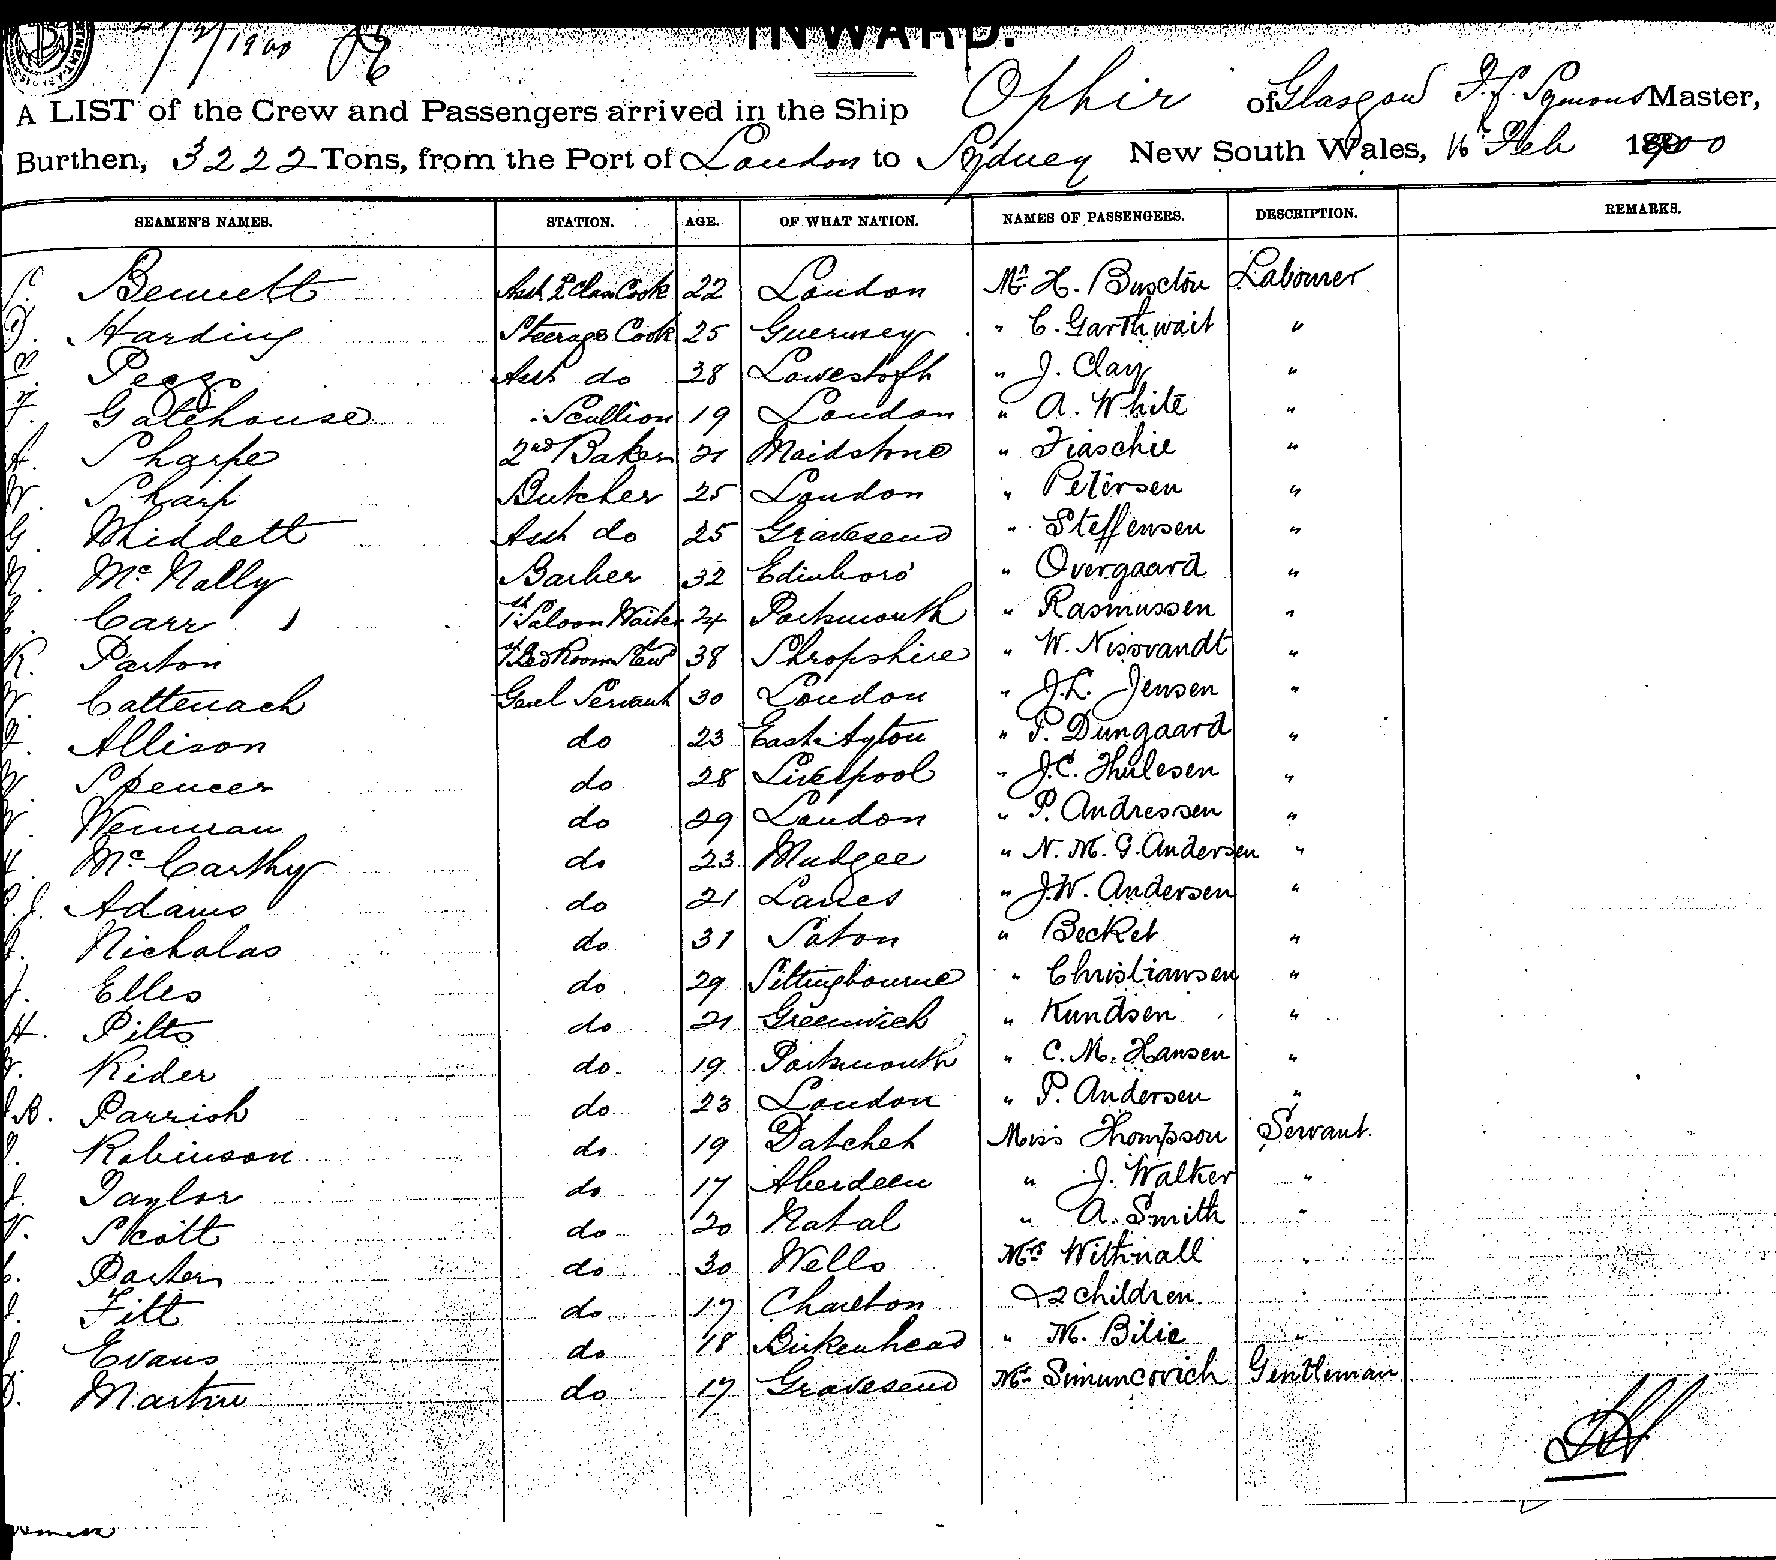 INWARD.
/2/1900
A LIST of the Crew and Passengers arrived in the Ship Ophir of Glasgow J. F. Symons Master,
Burthen, 3222 Tons, from the Port of London to Sydney New South Wales, 16 Feb 1900
SEAMEN'S NAMES. STATION. AGE. OF WHAT NATION. NAMES OF PASSENGERS. DESCRIPTION. REMARKS.
Bennett Asst 2 Class Cook 22 London Mr H. Buxton Labourer
Harding Steerage Cook 25 Guernsey " C. Garthwait "
Pegg Asst do 38 Lowestoft " J. Clay "
F. Gatehouse Scullion 19 London " A. White "
A. Sharpe 2nd Baker 21 Maidstone " Fiaschie "
W. Sharp Butcher 25 London " Petersen "
G. Middett Asst do 25 Gravesend " Steffensen "
Mc Nally Barber 32 Edinboro " Overgaard "
Carr 1st Saloon Waiter 24 Portsmouth " Rasmussen "
K. Parton 1st Bed Room Stewd 38 Shropshire " W. Nissvandt "
Cattenach Genl Servant 30 London " J.L. Jensen "
Allison do 23 East Ayton " P. Dungaard "
Spencer do 28 Liverpool " J.C. Thulesen "
Wenman do 29 London " P. Andressen "
Mc Carthy do 23 Mudgee " N. M. G. Andersen "
J. Adams do 21 Lances " J.W. Andersen "
Nicholas do 31 Saton " Becket "
Elles do 29 Sittingbourne " Christiansen "
H. Pilts do 21 Greenwich " Kundsen "
Rider do 19 Portsmouth " C. M. Hansen "
B. Parrish do 23 London " P. Andersen "
Robinson do 19 Datchet Miss Thompson Servant.
Taylor do 17 Aberdeen " J. Walker "
Scott do 20 Natal " A. Smith "
Porter do 30 Wells Mrs Withnall "
Fitt do 17 Charlton & 2 children "
Evans do 18 Birkenhead " M. Bilie "
Martin do 17 Gravesend Mr Simuncovich Gentleman